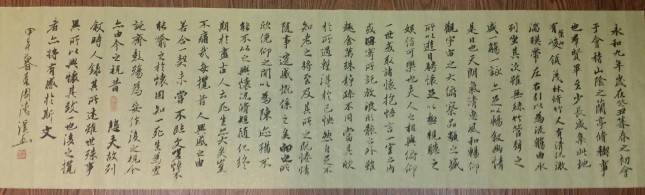 永和九年歲在癸丑暮春之初會
于會稽山陰之蘭亭脩禊事
也羣賢畢至少長咸集此地
有崇山峻領茂林脩竹又有清流激
湍暎帶左右引以為流觴曲水
列坐其次雖無絲竹管弦之
盛一觴一詠亦足以暢敘幽情
是日也天朗氣清惠風和暢仰
觀宇宙之大俯察品類之盛
所以遊目騁懷足以極視聽之
娛信可樂也夫人之相與俯仰
一世或取諸懷抱悟言一室之內
或因寄所託放浪形骸之外雖
趣舍萬殊靜躁不同當其欣
於所遇蹔得於己怏然自足不
知老之將至及其所之既惓情
隨事遷感慨係之矣向之所
欣俛仰之間以為陳迹猶不
能不以之興懷況脩短隨化終
期於盡古人云死生亦大矣豈
不痛哉每攬昔人興感之由
若合一契未嘗不臨文嗟悼不
能喻之於懷固知一死生為虛
誕齊彭殤為妄作後之視今
亦由今之視昔悲夫故列
敘時人錄其所述雖世殊事
異所以興懷其致一也後之攬
者亦將有感於斯文